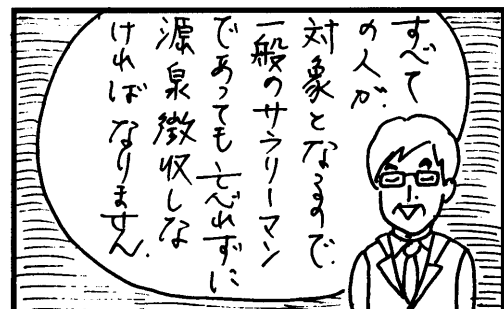 すべて
の人が、
対象となるので、
一般のサラリーマン
であっても忘れずに
源泉徴収しな
ければなりません。